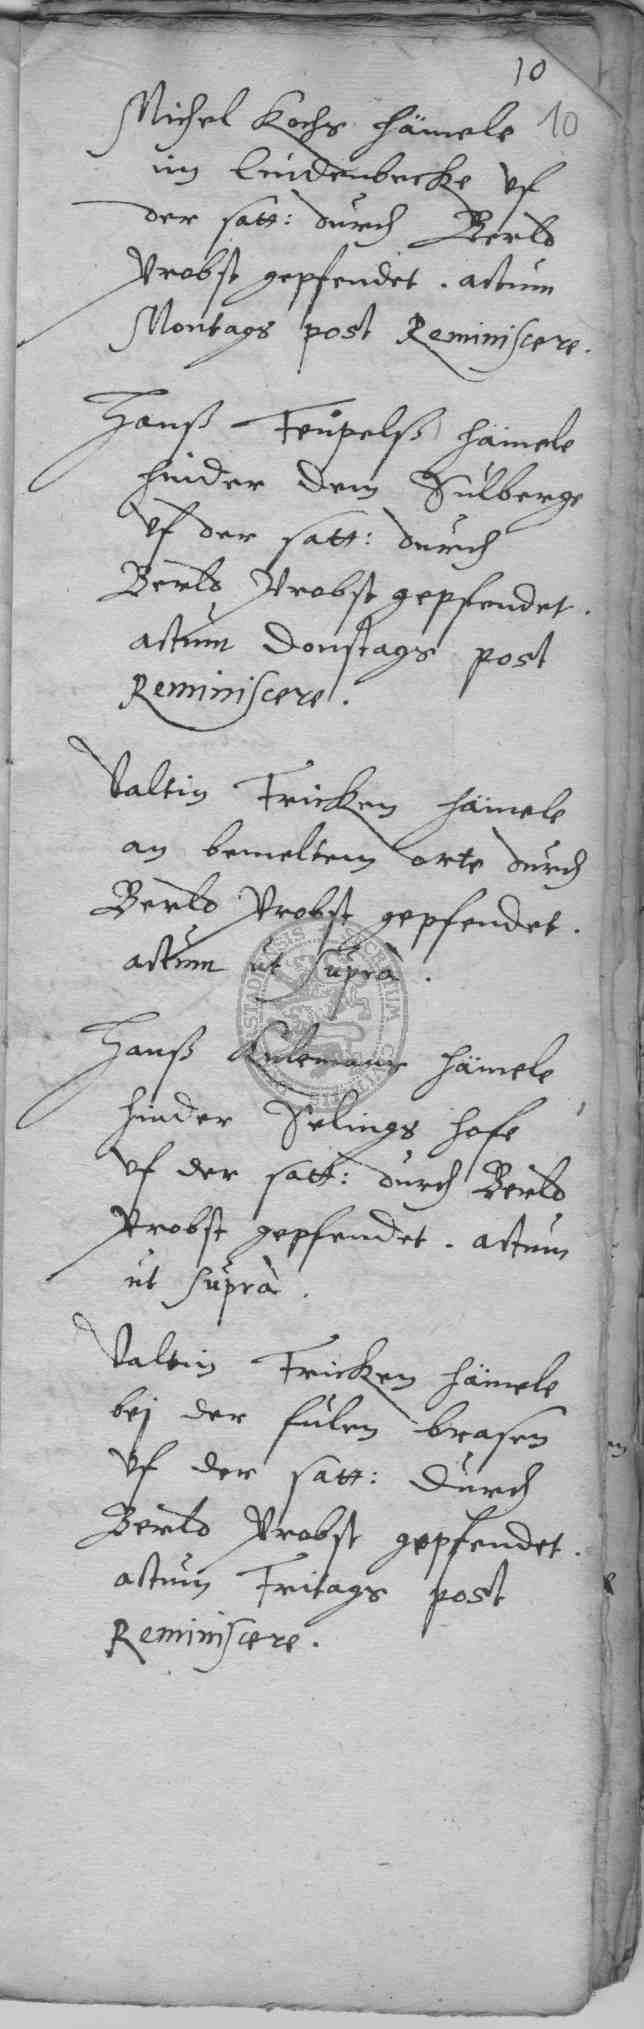 10
10
Michel Kochs hämele
im Lindenbecke vf
der satt: durch Berld
Probst gepfendet. actum
Montags post Reminiscere.
Hanß Teupelß hämele
hinder dem Sulberge
vf der satt: durch
Berld Probst gepfendet.
actum Donstags post
Reminiscere.
Valtin Fricken hämele
an bemeltem orte durch
Berld Probst gepfendet.
actum ut suprà.
Hanß Kulemans hämele
hinder Selings hofe
vf der satt: durch Berld
Probst gepfendet. actum
ut suprà.
Valtin Fricken hämele
bej der fulen brasen
vf der satt: durch
Berld Probst gepfendet.
actum Fritags post
Reminiscere.